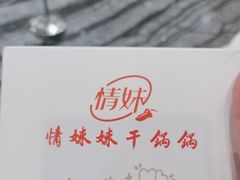 情妹
情妹妹干锅锅